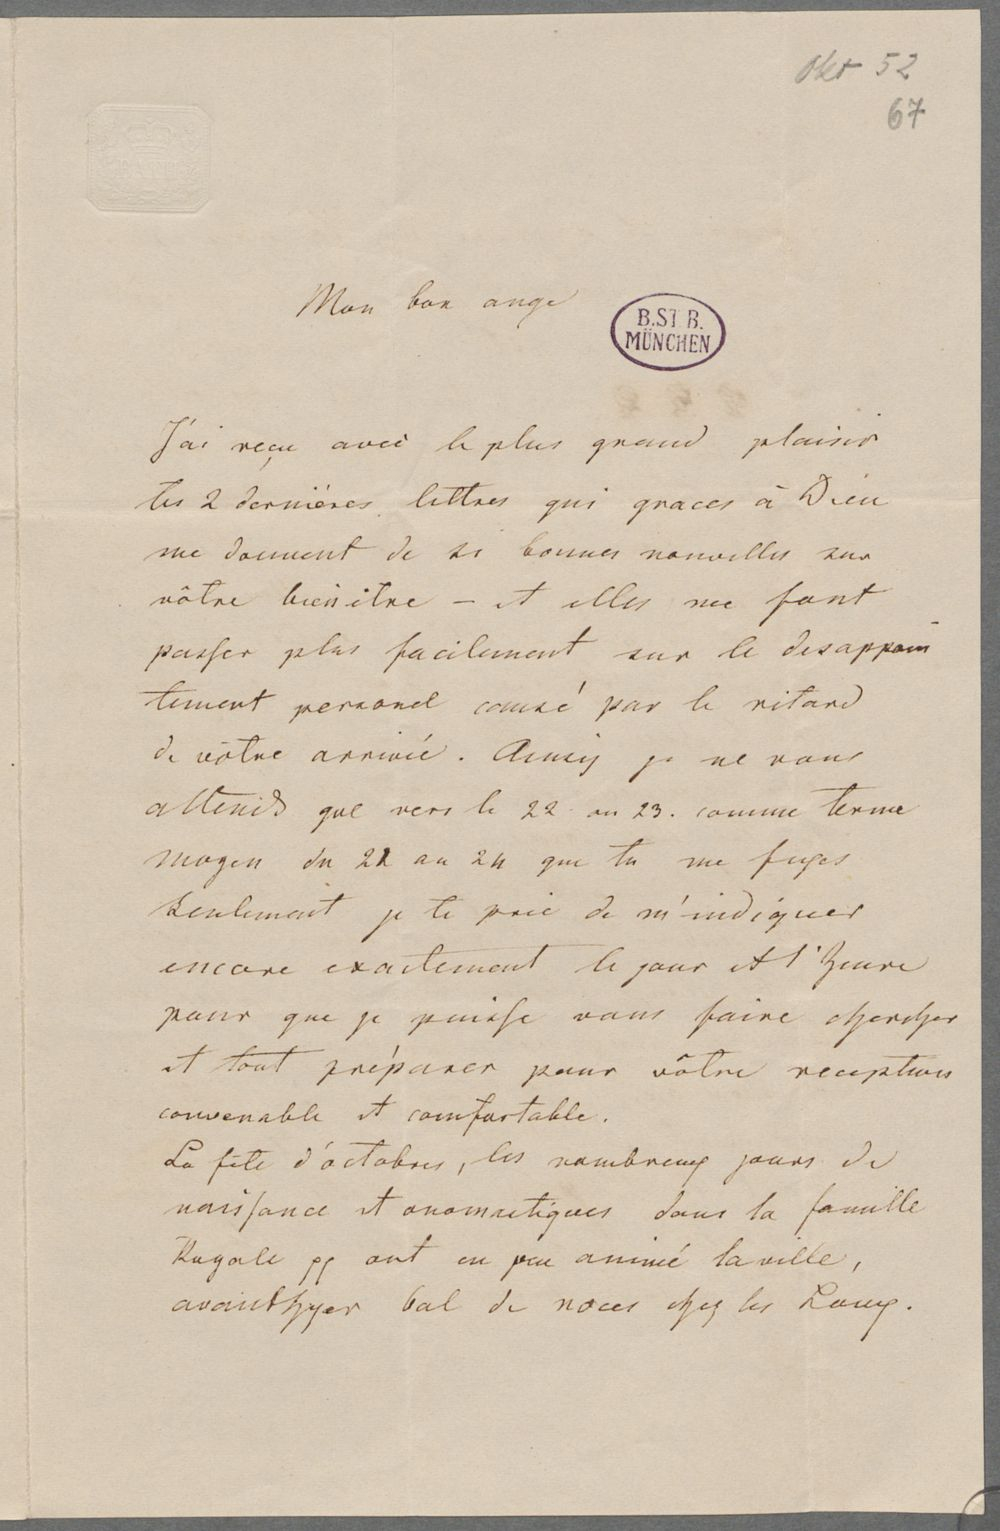 Okt 52
67
Mon bon ange
B.ST.B.
MÜNCHEN
J'ai reçu avec le plus grand plaisir
tes 2 dernières lettres qui graces à Dieu
me donnent de si bonnes nouvelles sur
vôtre bienêtre – et elles me font
passer plus facilement sur le desappoin
tement personel causé par le retard
de vôtre arrivée. Ainsi je ne vous
attends que vers le 22 ou 23. comme terme
moyen du 21 au 24 que tu me fixes
seulement je te prie de m'indiquer
encore exactement le jour et l'heure
pour que je puisse vous faire chercher
et tout préparer pour vôtre reception
convenable et comfortable.
La fête d'octobre, les nombreux jours de
naissance et onomastiques dans la famille
Royale pp ont un peu animé la ville,
avanthyer bal de noces chez les